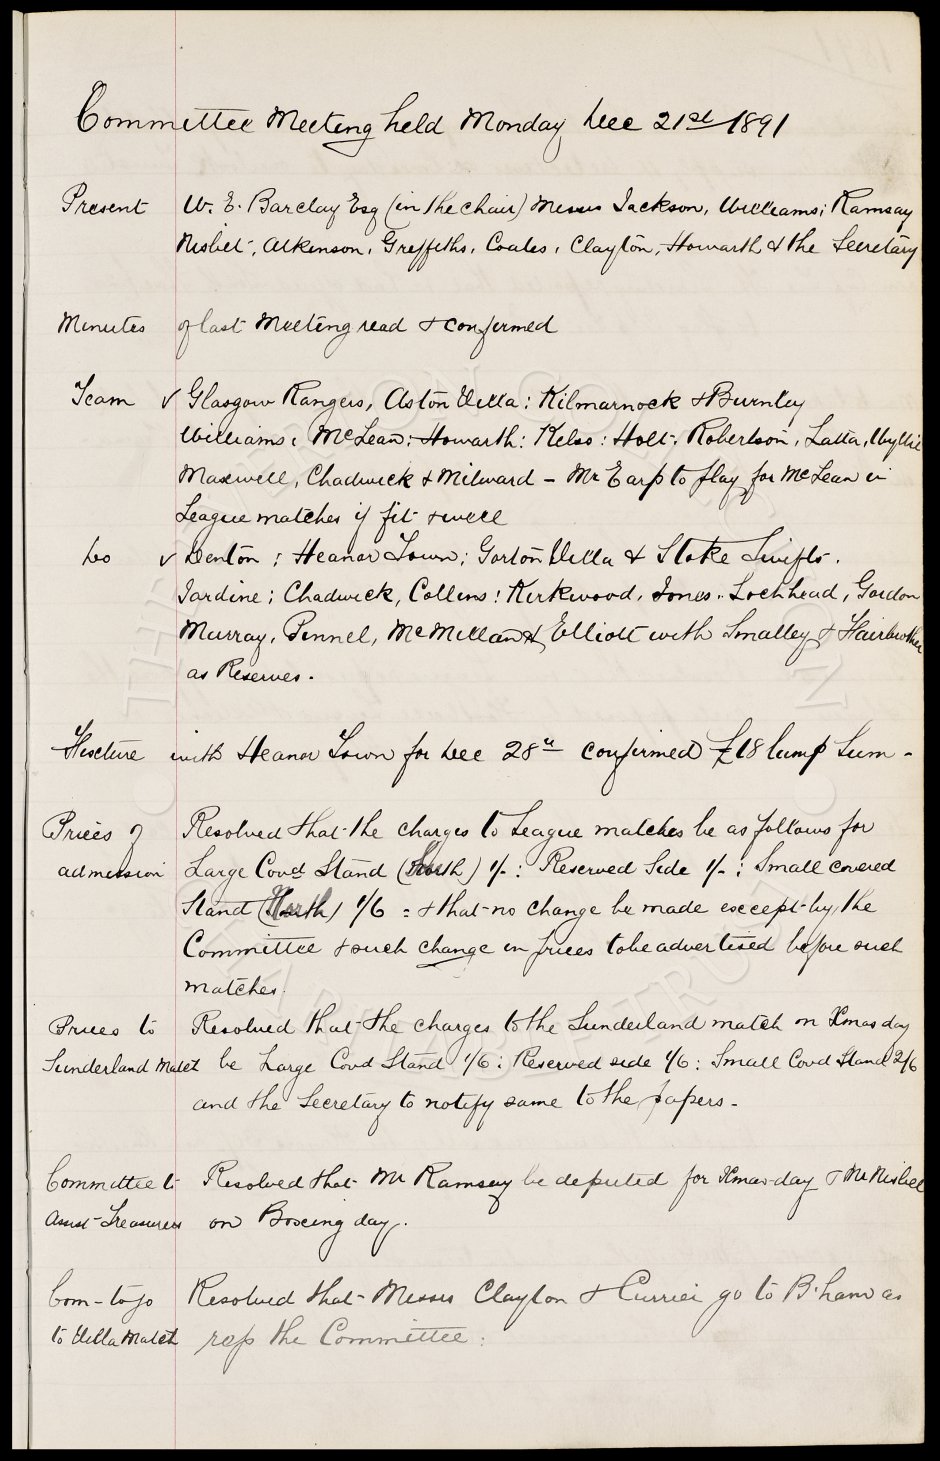 Committee Meeting held Monday Dec 21st 1891
Present W. E. Barclay Esq (in the chair) Messrs Jackson, Williams, Ramsay
Nisbet, Atkinson, Griffiths, Coates, Clayton, Howarth & the Secretary
Minutes of last Meeting read & confirmed
Team ✓ Glasgow Rangers, Aston Villa: Kilmarnock & Burnley
Williams, McLean: Howarth: Kelso: Holt, Robertson, Latta, Wyllie
Maxwell, Chadwick & Milward - Mr Earp to play for McLean in
League matches if fit & well
Do ✓ Denton; Heanor Town; Gorton Villa & Stoke Swifts.
Jardine; Chadwick, Collins: Kirkwood, Jones, Lochhead, Gordon
Murray, Pennel, McMillan & Elliott with Smalley & Hairbrother
as Reserves.
Fixture with Heanor Town for Dec 28th confirmed £18 lump Sum -
Prices of Resolved that the charges to League matches be as follows for
admission Large Covd Stand ( ) 1/-: Reserved Side 1/-: Small covered
Stand ( ) 1/6 = & that no change be made except by the
Committee & such change in prices to be advertised before such
matches.
Prices to Resolved that the charges to the Sunderland match on Xmas day
Sunderland Match be Large Covd Stand 1/6: Reserved side 1/6: Small Covd Stand 2/6
and the Secretary to notify same to the papers -
Committee to Resolved that Mr Ramsay be deputed for Xmas-day & Mr Nisbet
Assist Treasurer on Boxing day.
Com- to go Resolved that Messrs Clayton & Currier go to B'ham as
to Villa Match rep the Committee.